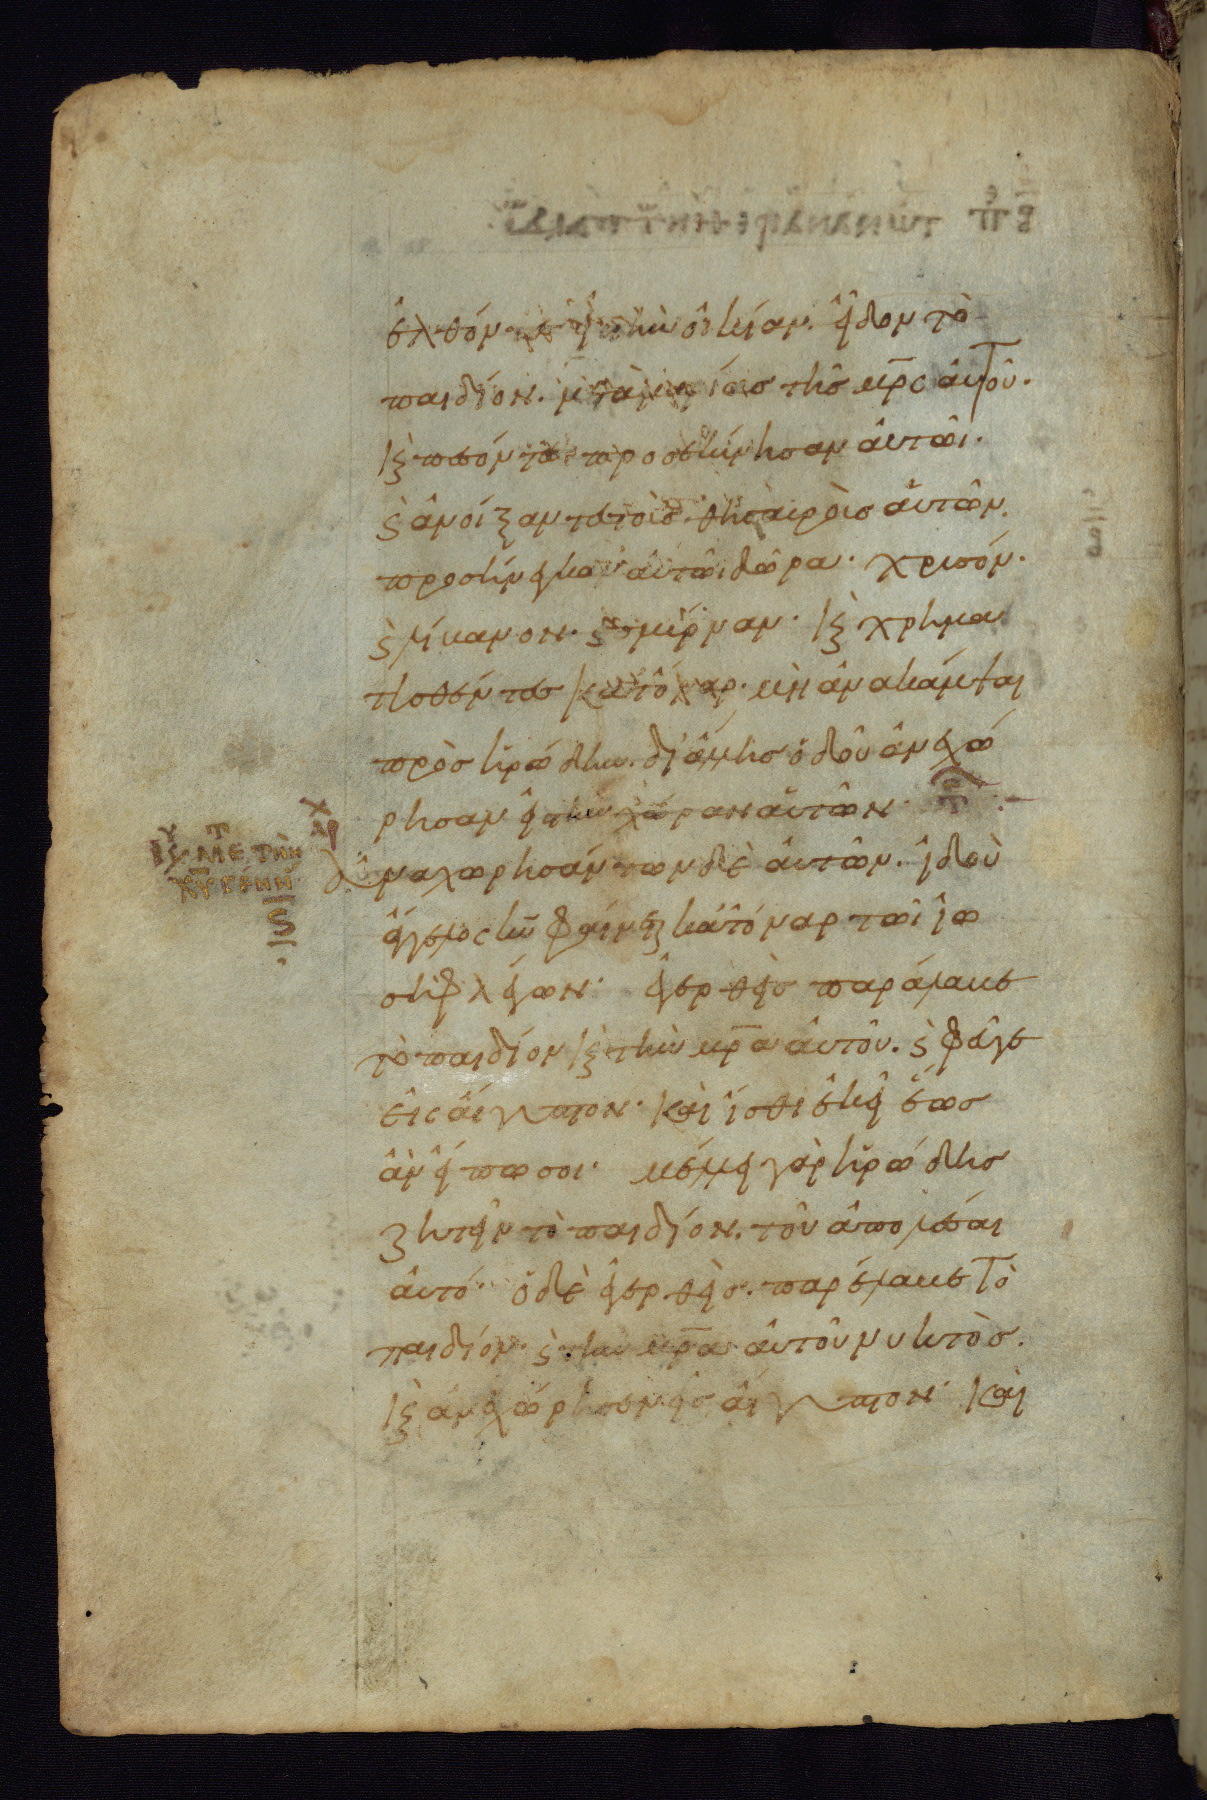 ἐλθόντες εἰς τὴν οἰκίαν. εἶδον τὸ
παιδίον. μετὰ μαρίας τῆς μρ̅ς αὐτοῦ.
κ πεσόντες προσεκύνησαν αὐτῶι.
κ ἀνοίξαντες τοὺς θησαυροὺς αὐτῶν.
προσήνεγκαν αὐτῶι δῶρα. χρυσόν.
κ λίβανον. κ σμύρναν. κ χρημα
τισθέντες κατ' ὄναρ. μὴ ἀνακάμψαι
πρὸς ἡρώδην. δι' ἄλλης ὁδοῦ ἀνεχώ
ρησαν εἰς τὴν χώραν αὐτῶν.
Ἀναχωρησάντων δὲ αὐτῶν. ἰδοὺ
ἄγγελος κῡ φαίνεται κατ' ὄναρ τῶι ἰω
σὴφ λέγων. ἐγερθεὶς παράλαβε
τὸ παιδίον κ τὴν μρ̅α αὐτοῦ. κ φεῦγε
εἰς αἴγυπτον. καὶ ἴσθι ἐκεῖ ἕως
ἂν εἴπω σοι. μέλλει γὰρ ἡρώδης
ζητεῖν τὸ παιδίον. τοῦ ἀπολέσαι
αὐτό. ὁ δὲ ἐγερθεὶς. παρέλαβε τὸ
παιδίον. κ τὴν μρ̅α αὐτοῦ νυκτὸς.
κ ἀνεχώρησεν εἰς αἴγυπτον. καὶ
ΜΕΤ ΤΗΝ
ΧΥ ΓΕΝΝ